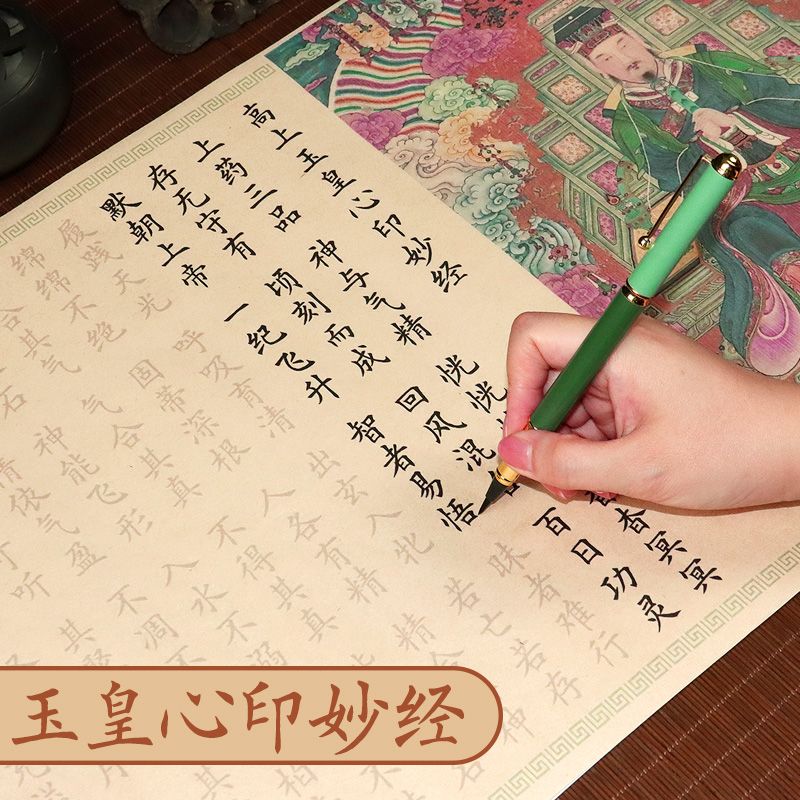 高上玉皇心印妙经
上药三品 神与气精 恍恍 杳冥冥
存无守有 顷刻而成 回风混 百日功灵
默朝上帝 一纪飞升 智者易悟 昧者难行
履践天光 呼吸育清 出玄入牝 若亡若存
绵绵不绝 固蒂深根 人各有精 精合 神
合其气 气合其真 不得其真
石 神能飞形 入水不溺
依气盈 不凋 柏
听 其聚
玉皇心印妙经